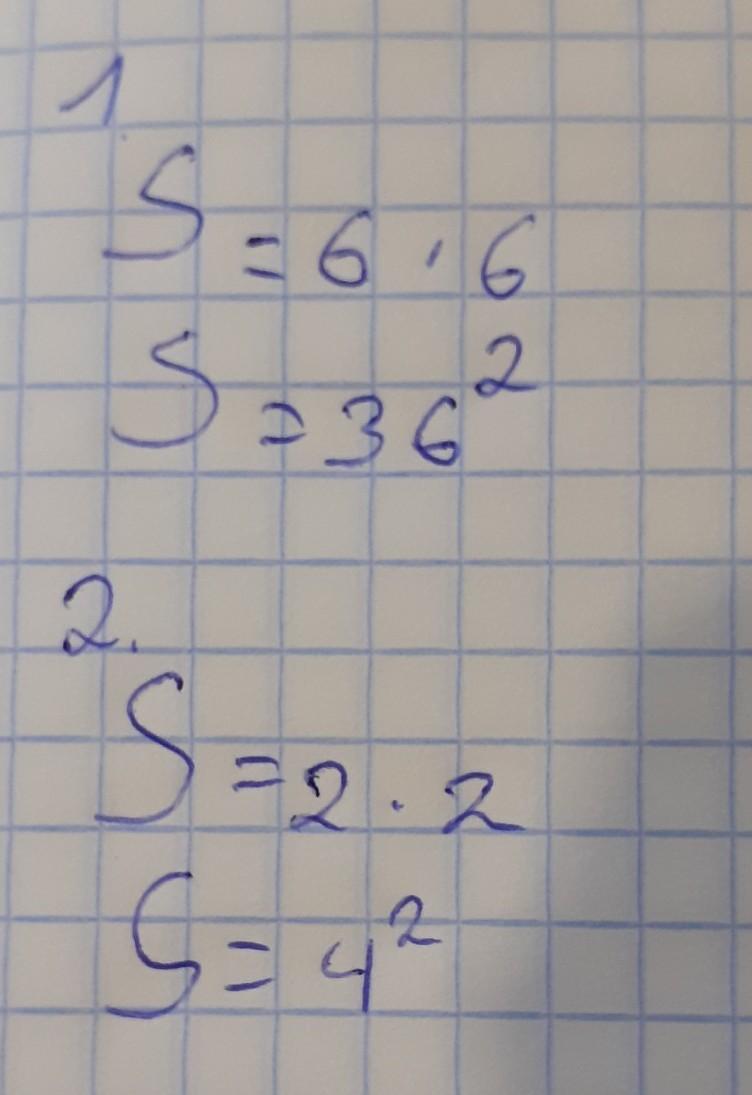 1.
S = 6 · 6
S = 36²
2.
S = 2 · 2
S = 4²